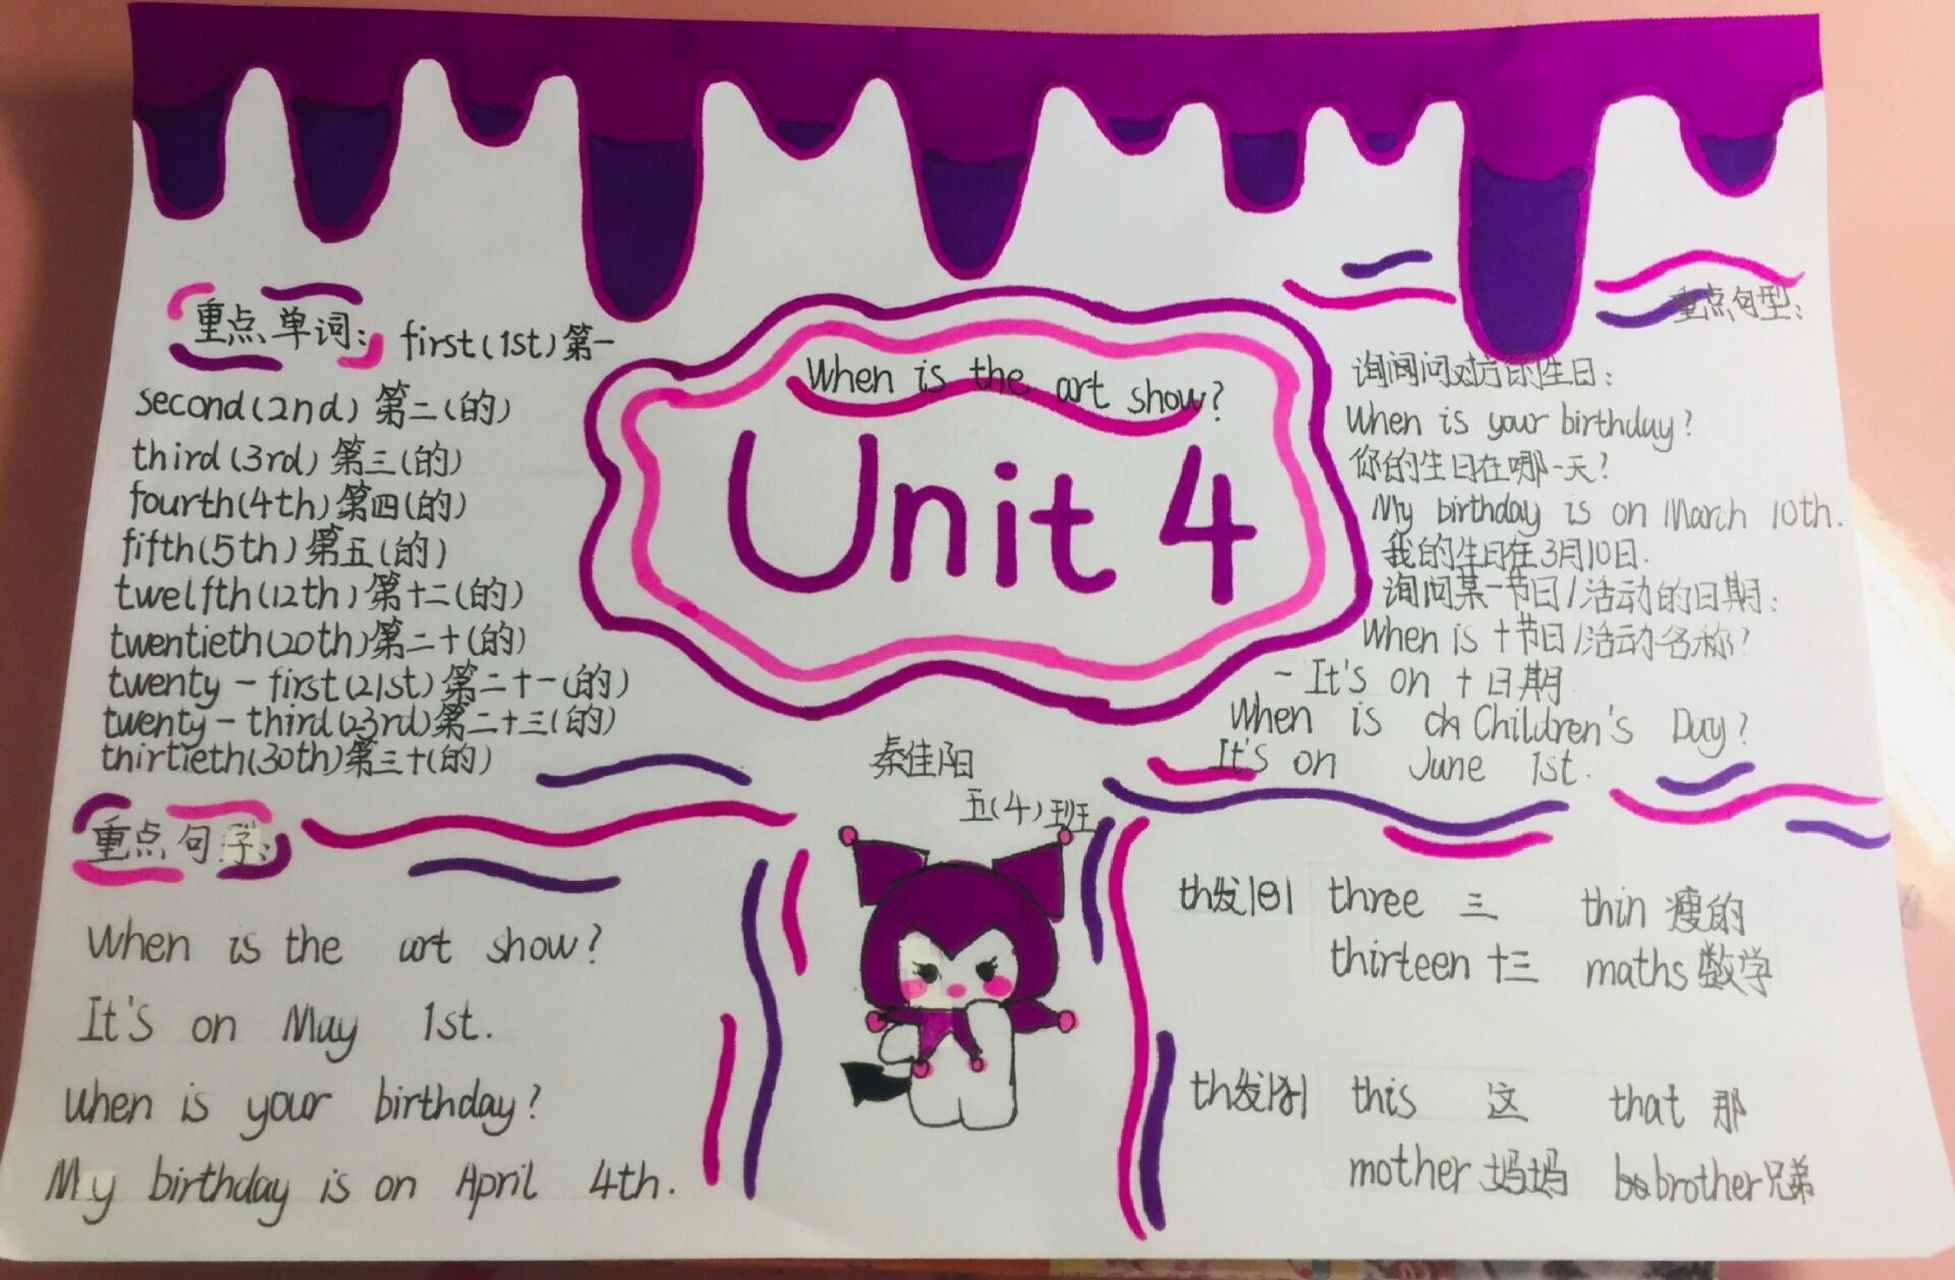 重点单词: first(1st)第一
second(2nd) 第二(的)
third(3rd) 第三(的)
fourth(4th)第四(的)
fifth(5th)第五(的)
twelfth(12th)第十二(的)
twentieth(20th)第二十(的)
twenty-first(21st)第二十一(的)
twenty-third(23rd)第二十三(的)
thirtieth(30th)第三十(的)
When is the art show?
Unit 4
重点句型:
询问对方的生日:
When is your birthday?
你的生日在哪一天?
My birthday is on March 10th.
我的生日在3月10日.
询问某一节日/活动的日期:
When is +节日/活动名称?
- It's on +日期
When is Children's Day?
It's on June 1st.
秦佳阳
五(4)班
重点句子:
When is the art show?
It's on May 1st.
When is your birthday?
My birthday is on April 4th.
th发|θ| three 三 thin 瘦的
thirteen 十三 maths 数学
th发|ð| this 这 that 那
mother 妈妈 brother兄弟